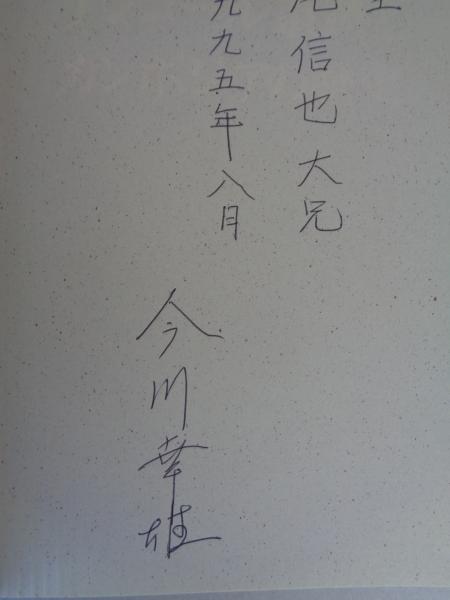 信也大兄
九五年八月
今川幸雄